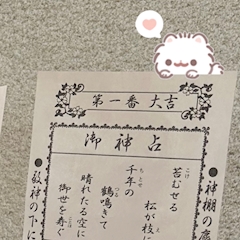 第一番 大吉
御神占
●神棚の
こけ
苔むせる
え
松が枝に
ちとせ
千年の
つる
鶴鳴きて
晴れたる空に
御世を寿ぐ
●敬神の下に